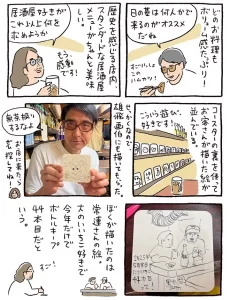 どのお料理も
ボリューム感たっぷり!
日の暮は何人かで
来るのがオススメ
だね
すごいでしょ
このハムカツ!
歴史を感じる店内、
スタンダードな居酒屋
メニューがちゃんと美味
しい。
居酒屋好きが
これ以上何を
求めようか
もう、
感動
です!
コースターの裏を使って
お客さんが描いた絵が
並んでいる。
こういう遊び、
好きです!
せっかくなので、
雄飛画伯にも描いてもらった。
無茶振り
するなよ
お店に来たら
探してねー!
ぼくが描いたのは
常連さんの絵。
大のいいちこ好きで
今年だけで
ボトルキープ
44本目だと
いう。
すご!